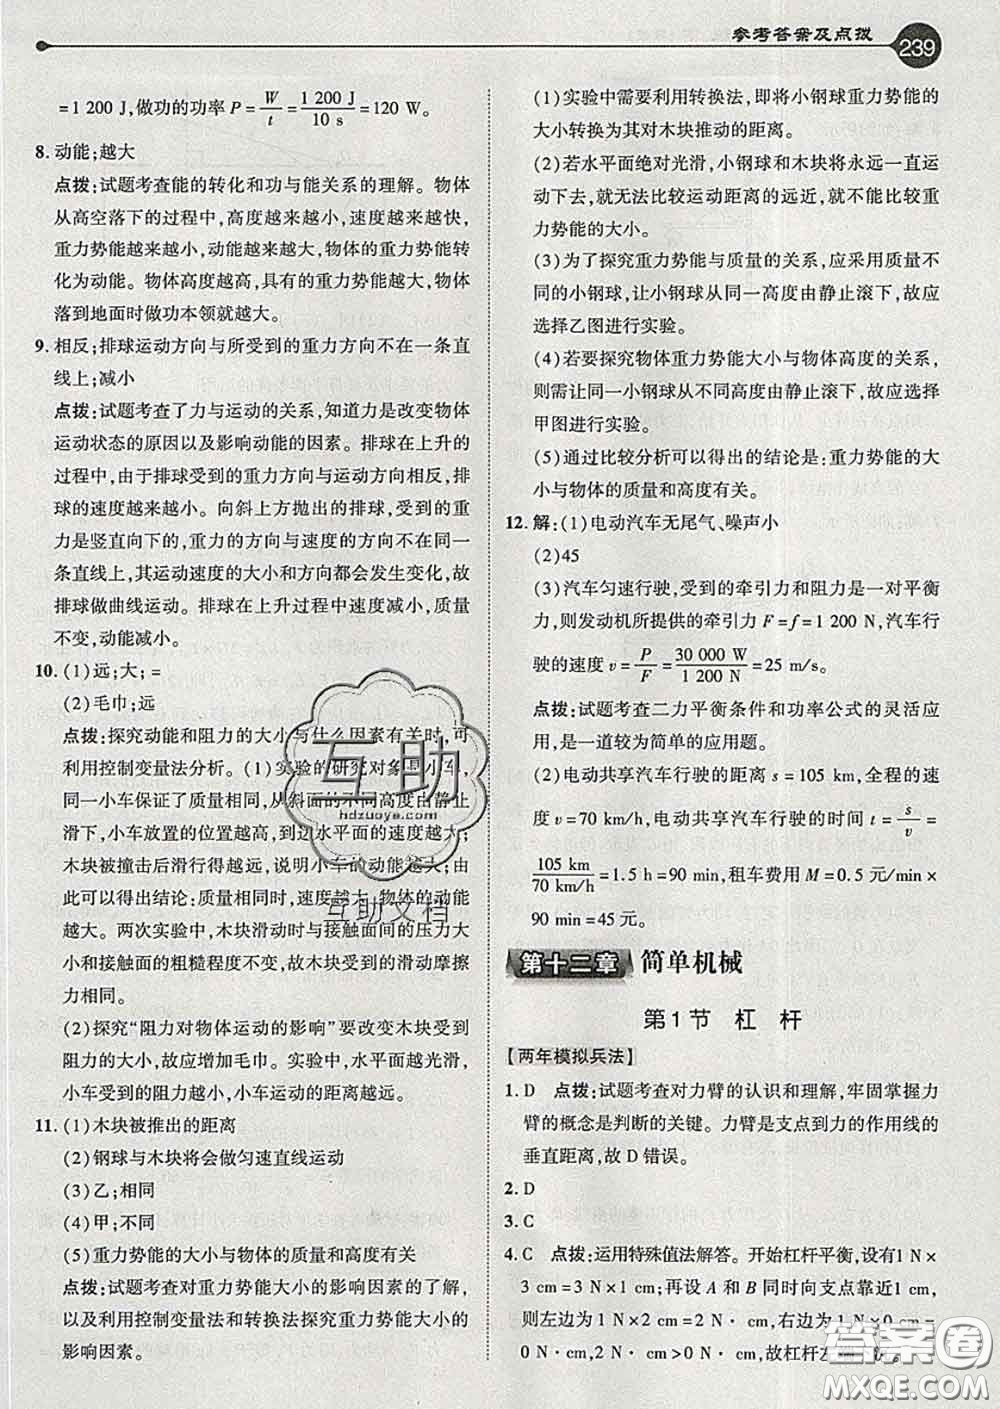 参考答案及点拨
239
=1 200 J,做功的功率 P=W/t=1 200 J/10 s=120 W。
8. 动能;越大
点拨:试题考查能的转化和功与能关系的理解。物体
从高空落下的过程中,高度越来越小,速度越来越快,
重力势能越来越小,动能越来越大,物体的重力势能转
化为动能。物体高度越高,具有的重力势能越大,物体
落到地面时做功本领就越大。
9. 相反;排球运动方向与所受到的重力方向不在一条直
线上;减小
点拨:试题考查了力与运动的关系,知道力是改变物体
运动状态的原因以及影响动能的因素。排球在上升的
过程中,由于排球受到的重力方向与运动方向相反,排
球的速度越来越小。向斜上方抛出的排球,排球受的重
力是竖直向下的,重力的方向与速度的方向不在同一
条直线上,其运动速度的大小和方向都会发生变化,故
排球做曲线运动。排球在上升过程中,速度减小,质量
不变,动能减小。
10. (1)远;大;=
(2)毛巾;远
点拨:探究动能和阻力的大小与什么因素有关时,可
利用控制变量法分析。(1)实验的研究对象是小车,
同一小车保证了质量相同,从斜面的不同高度由静止
滑下,小车放置的位置越高,到达水平面的速度越大;
木块被撞击后滑行得越远,说明小车的动能越大;由
此可以得出结论:质量相同时,速度越大,物体的动能
越大。两次实验中,木块滑动时对接触面的压力大小
和接触面的粗糙程度不变,故木块受到的滑动摩擦
力相同。
(2)探究“阻力对物体运动的影响”要改变木块受到阻
力的大小,故应增加毛巾。实验中,水平面越光滑,
小车受到的阻力越小,小车运动的距离越远。
11. (1)木块被推出的距离
(2)钢球与木块将会做匀速直线运动
(3)乙;相同
(4)甲;不同
(5)重力势能的大小与物体的质量和高度有关
点拨:试题考查对重力势能大小的影响因素的了解,
以及利用控制变量法和转换法探究重力势能大小的
影响因素。
(1)实验中需要利用转换法,即将小钢球重力势能的
大小转换为其对木块推动的距离。
(2)若水平面绝对光滑,小钢球和木块将永远一直运
动下去,就无法比较运动距离的远近,就不能比较重
力势能的大小。
(3)为了探究重力势能与质量的关系,应采用质量不
同的小钢球,让小钢球从相同高度由静止滚下,故应
选择乙图进行实验。
(4)若要探究物体重力势能大小与物体高度的关系,
则需要让同一小钢球从不同高度由静止滚下,故应选择
甲图进行实验。
(5)通过比较分析可以得出的结论是:重力势能的大
小与物体的质量和高度有关。
12. 解:(1)电动汽车无尾气、噪声小
(2)45
(3)汽车匀速行驶,受到的牵引力和阻力是一对平衡
力,则发动机所提供的牵引力 F=f=1 200 N,汽车行
驶的速度 v=P/F=30 000 W/1 200 N=25 m/s。
点拨:试题考查二力平衡条件和功率公式的灵活应
用,是一道较为简单的应用题。
(2)电动共享汽车行驶的距离 s=105 km,全程的速
度 v=70 km/h,电动共享汽车行驶的时间 t=s/v=
105 km/70 km/h=1.5 h=90 min,租车费用 M=0.5 元/min×
90 min=45 元。
第十二章 简单机械
第1节 杠 杆
【两年模拟兵法】
1. D 点拨:试题考查对力臂的认识和理解,牢固掌握力
臂的概念是判断的关键。力臂是支点到力的作用线的
垂直距离,故 D 错误。
2. D
3. C
4. C 点拨:运用特殊值法解答。开始杠杆平衡,设有1 N×
3 cm=3 N×1 cm;再设 A 和 B 同时向支点靠近1 cm,
则左边为1 N×2 cm=2 N·cm,右边为1 N×0 cm
=0 N·cm,2 N·cm>0 N·cm,故杠杆左
互助
hdzuoye.com
互助文档
答案圈
MXQE.COM